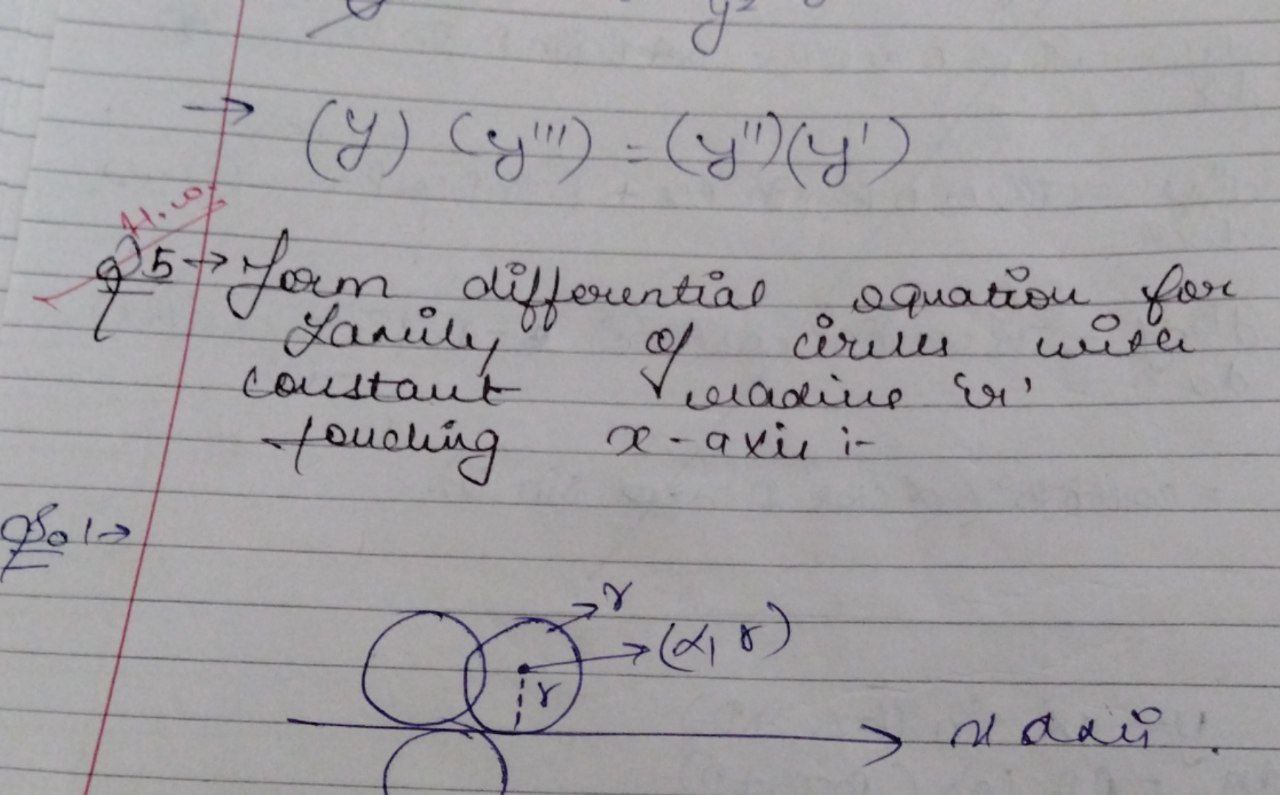 y²
→ (y) (y''') = (y'')(y')
H.W.
Q5 → Form differential equation for
family of circles with
constant radius 'r'
touching x-axis :-
Sol →
r
(α, r)
r
x axis.